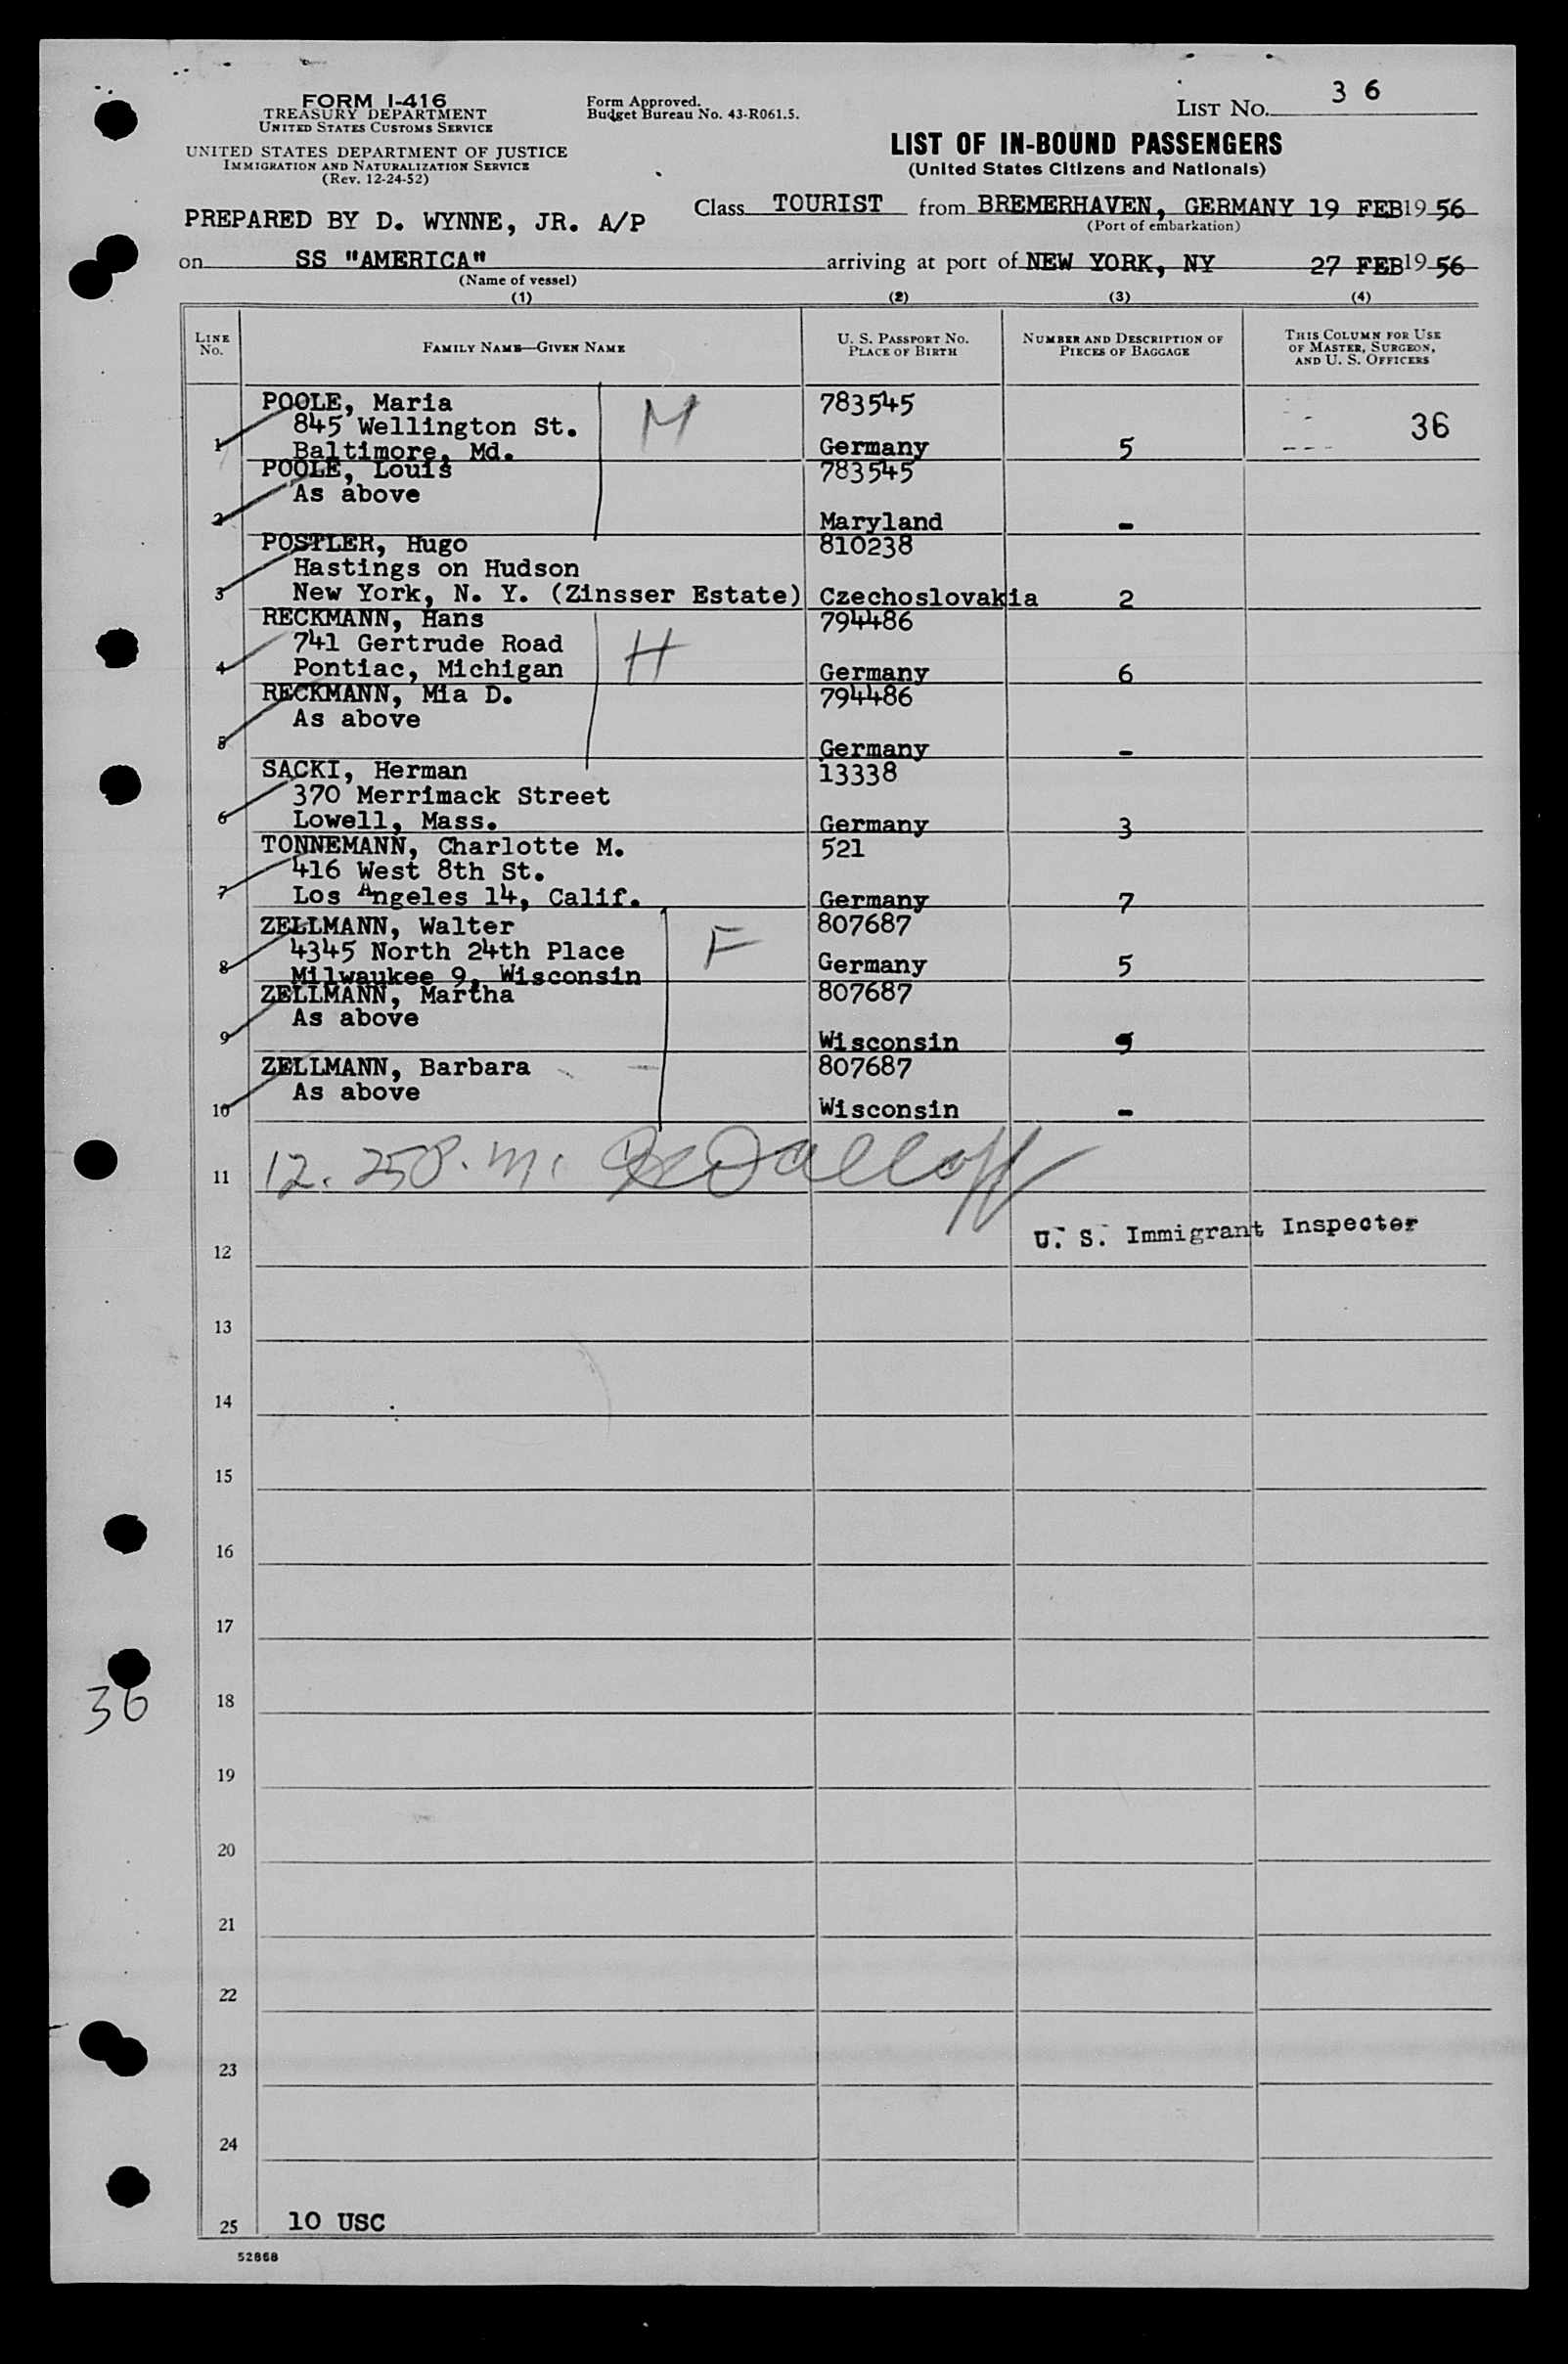 FORM I-416
TREASURY DEPARTMENT
UNITED STATES CUSTOMS SERVICE
UNITED STATES DEPARTMENT OF JUSTICE
IMMIGRATION AND NATURALIZATION SERVICE
(Rev. 12-24-52)
Form Approved.
Budget Bureau No. 43-R061.5.
LIST NO. 3 6
LIST OF IN-BOUND PASSENGERS
(United States Citizens and Nationals)
PREPARED BY D. WYNNE, JR. A/P
Class TOURIST from BREMERHAVEN, GERMANY 19 FEB 19 56
(Port of embarkation)
on SS "AMERICA" arriving at port of NEW YORK, NY 27 FEB 19 56
(Name of vessel)
(1) (2) (3) (4)
LINE NO.
FAMILY NAME—GIVEN NAME
U. S. PASSPORT NO.
PLACE OF BIRTH
NUMBER AND DESCRIPTION OF
PIECES OF BAGGAGE
THIS COLUMN FOR USE
OF MASTER, SURGEON,
AND U. S. OFFICERS
POOLE, Maria 783545
845 Wellington St. M 36
1 Baltimore, Md. Germany 5
POOLE, Louis 783545
As above
2 Maryland -
POSTLER, Hugo 810238
Hastings on Hudson
3 New York, N. Y. (Zinsser Estate) Czechoslovakia 2
RECKMANN, Hans 794486
741 Gertrude Road H
4 Pontiac, Michigan Germany 6
RECKMANN, Mia D. 794486
As above
5 Germany -
SACKI, Herman 13338
370 Merrimack Street
6 Lowell, Mass. Germany 3
TONNEMANN, Charlotte M. 521
416 West 8th St.
7 Los Angeles 14, Calif. Germany 7
ZELLMANN, Walter 807687
4345 North 24th Place F
8 Milwaukee 9, Wisconsin Germany 5
ZELLMANN, Martha 807687
As above
9 Wisconsin
ZELLMANN, Barbara 807687
As above
10 Wisconsin -
11 12.25 P.M.
U. S. Immigrant Inspector
12
13
14
15
16
17
36
18
19
20
21
22
23
24
25 10 USC
52868